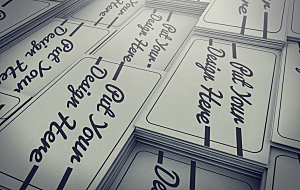 Put Your
Design Here
Put Your
Design Here
Put Your
Design Here
Put Your
Design Here
Design